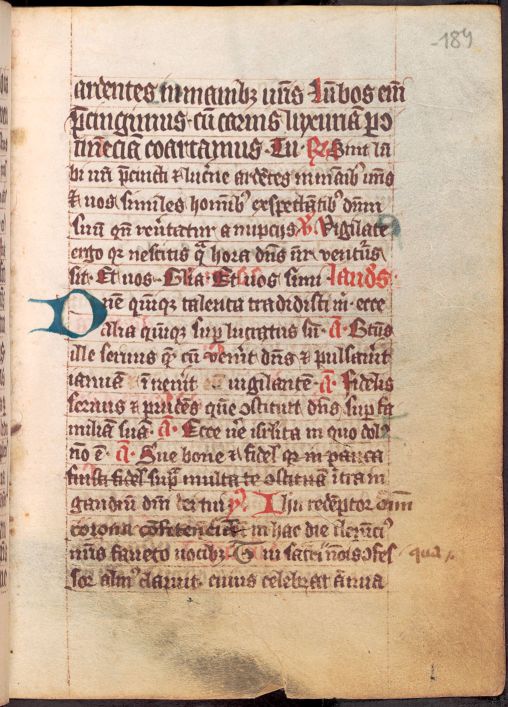 189
ardentes in manibꝫ uris Lūbos em̄
p̄cingimus· cū carnis luxuriā ꝑ ꝯ
tinēciā coartamus· Tu · ℞ Sint lū
bi uri p̄cincti ⁊ lucrne ardētes in manibꝰ uris
⁊ uos similes hoīnibꝰ expectātibꝰ dnm̄
suū qn̄ reuertatur a nupcijs ℣. Vigilate
ergo qꝛ nescitis q̄ hora dns̄ nr̄ uenturꝰ
sit· Et uos · Glia · Et uos simi laudꝭ·
Dne quinqꝫ talenta tradidisti m̄· ecce
alia quinqꝫ supͥ lucratus sū· A· Btūs
ille seruus qͥ· cū venit̄ dns̄ ⁊ pulsauit̄
ianuā īuenit̄ uigilantē · A· fidelis
seruus ⁊ prudēs quē ꝯstituit dns̄ sup fa
miliā suā· A· Ecce ue isrlita in quo dolꝰ
nō ē· A· Sue bone ⁊ fidel̄ qꝛ in pauca
fuisti fidel̄ supͣ multa te ꝯstituā itra in
gaudiū dni dei tui y̅ Ihu redēptor om̄
corona confitenciū in hac die clemēciꝰ
nris faueto uocibꝫ Quo sacri nois ꝯfes qua
sor almꝰ claruit· cuius celebrat ānua